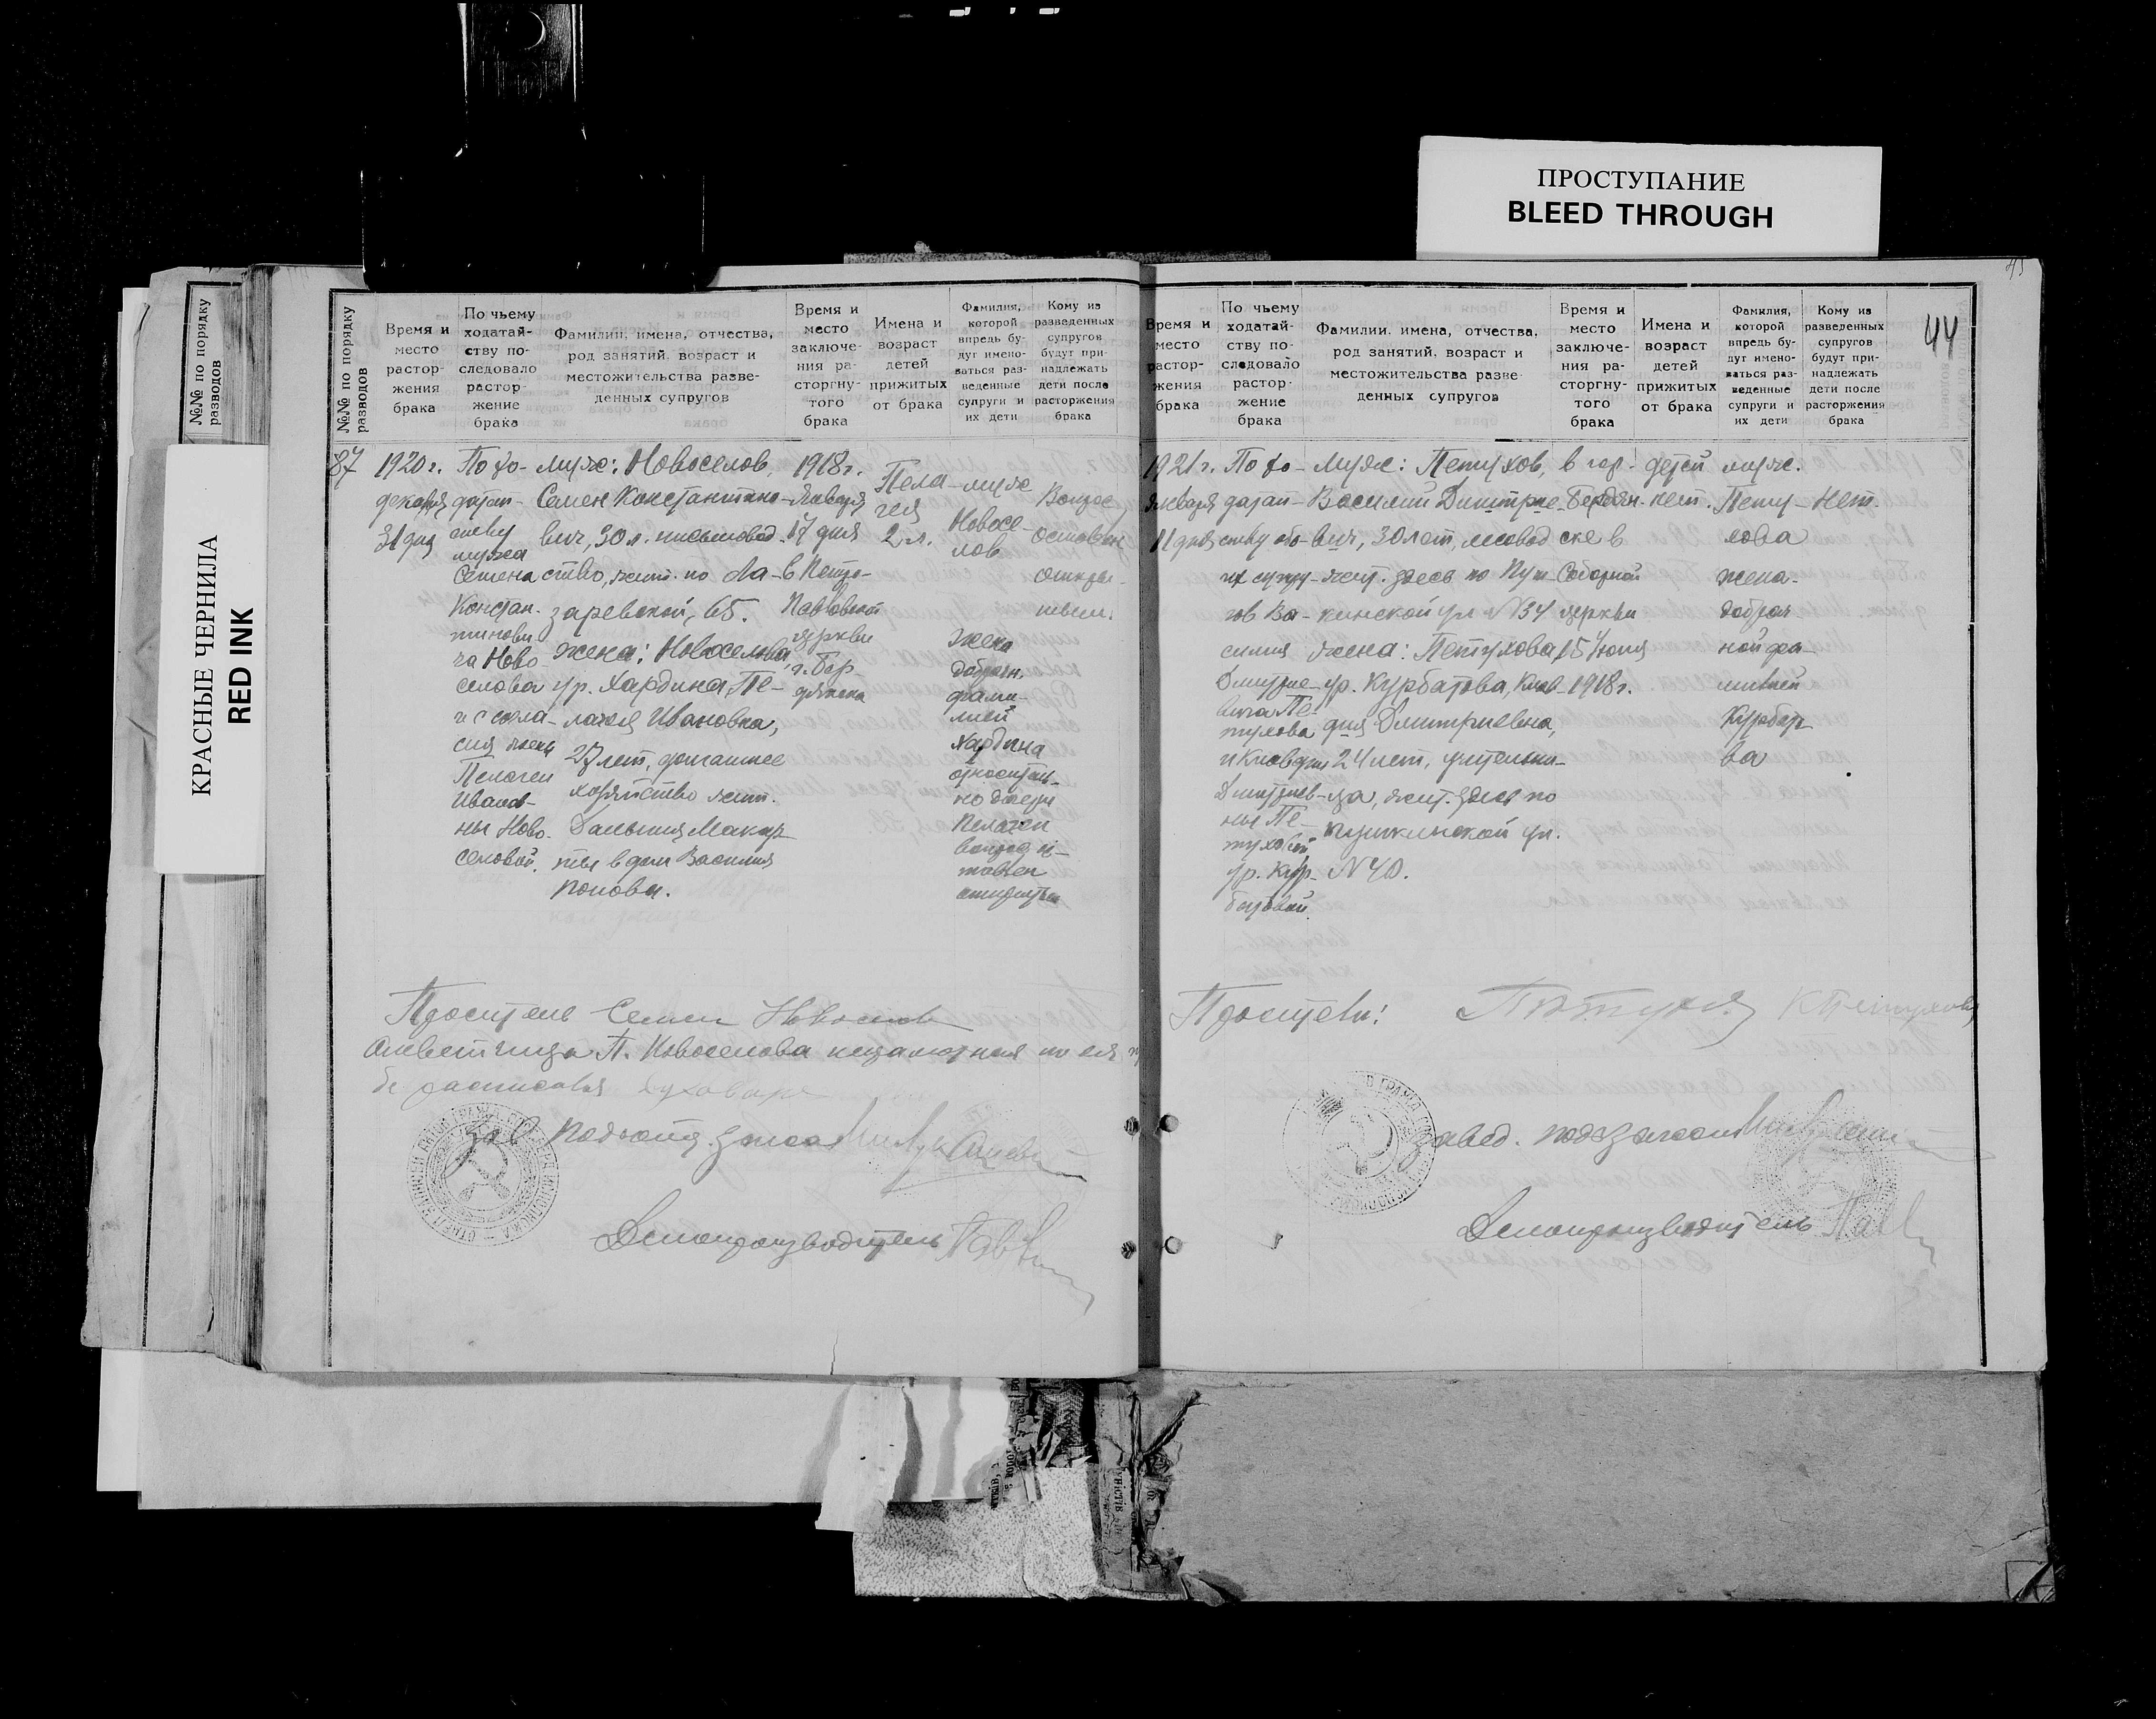 ПРОСТУПАНИЕ
BLEED THROUGH
КРАСНЫЕ ЧЕРНИЛА
RED INK
№№ по порядку
разводов
№№ по порядку
разводов
Время и
место
растор-
жения
брака
По чьему
ходатай-
ству по-
следовало
растор-
жение
брака
Фамилии, имена, отчества,
род занятий, возраст и
местожительства разве-
денных супругов
Время и
место
заключе-
ния ра-
сторгну-
того
брака
Имена и
возраст
детей
прижитых
от брака
Фамилия,
которой
впредь бу-
дут имено-
ваться раз-
веденные
супруги и
их дети
Кому из
разведенных
супругов
будут при-
надлежать
дети после
расторжения
брака
87
1920 г.
декабря
31 дня
По хо-
датай-
ству
мужа
Семена
Констан-
тинови-
ча Ново-
селова
и с согла-
сия жены
Пелагеи
Иванов-
ны Ново-
селовой.
муж: Новоселов,
Семен Константино-
вич, 30 л. письмовод-
ство, жит. по Ла-
заревской, 65.
жена: Новоселова,
ур. Хардина, Пе-
лагея Ивановна,
27 лет, домашнее
хозяйство жит.
Дальния Макор
ты в дом Василия
Попова.
1918 г.
Января
17 дня
в Петро-
Павловской
церкви
г. Бер-
дянска
Пела-
гея
2 л.
муж
Новосе-
лов
жена
добрачн.
фами-
лией
Хардина
относитель-
но дочери
Пелагеи
вопрос о-
ставлен
открытым
Вопрос
оставлен
откры-
тым.
Проситель Семен Новоселов
Ответчица П. Новоселова неграмотная по ея
бе расписался
Зав подотд. записи
Делопроизводитель
45
44
Время и
место
растор-
жения
брака
По чьему
ходатай-
ству по-
следовало
растор-
жение
брака
Фамилии, имена, отчества,
род занятий, возраст и
местожительства разве-
денных супругов
Время и
место
заключе-
ния ра-
сторгну-
того
брака
Имена и
возраст
детей
прижитых
от брака
Фамилия,
которой
впредь бу-
дут имено-
ваться раз-
веденные
супруги и
их дети
Кому из
разведенных
супругов
будут при-
надлежать
дети после
расторжения
брака
1921 г.
января
11 дня
По хо-
датай-
ству обо-
их супру-
гов Ва-
силия
Дмитрие-
вича Пе-
тухова
и Клавдии
Дмитриев-
ны Пе-
туховой
ур. Кур-
батовой.
муж: Петухов,
Василий Дмитрие-
вич, 30 лет, лесовод
жит. здесь по Пуш-
кинской ул № 34
жена: Петухова,
ур. Курбатова, Клав-
дия Дмитриевна,
24 лет, учительни-
ца, жит. здесь по
пушкинской ул.
N 40.
в гор.
Бердян-
ске в
Соборной
церкви
15 Июня
1918 г.
детей
нет.
муж.
Пету-
хова
жена-
добрач-
ной фа-
милией
Курбато-
ва
Нет.
Просители: Петухов К Петухова
Завед. подотд записи
Делопроизводитель